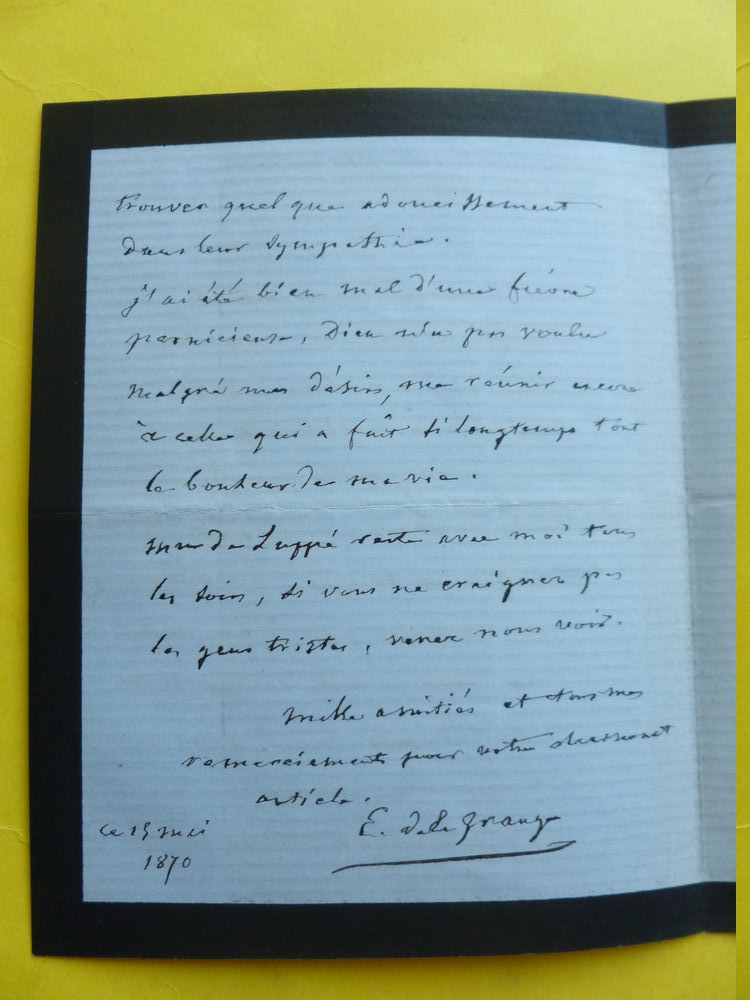 trouver quelque adoucissement
dans leur sympathie.
j'ai été bien mal d'une fièvre
pernicieuse, Dieu n'a pas voulu
malgré mes désirs, me réunir encore
à celle qui a fait si longtemps tout
le bonheur de ma vie.
mme de Luppé reste avec moi tous
les soirs, si vous ne craignez pas
les gens tristes, venez nous voir.
mille amitiés et tous mes
remerciements pour votre charmant
article.
ce 15 mai
1870
E. de La Grange